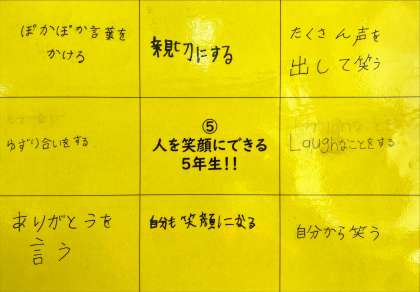 ぽかぽか言葉を
かける
親切にする
たくさん声を
出して笑う
ゆずり合いをする
⑤
人を笑顔にできる
5年生!!
Laughなことをする
ありがとうを
言う
自分も笑顔になる
自分から笑う